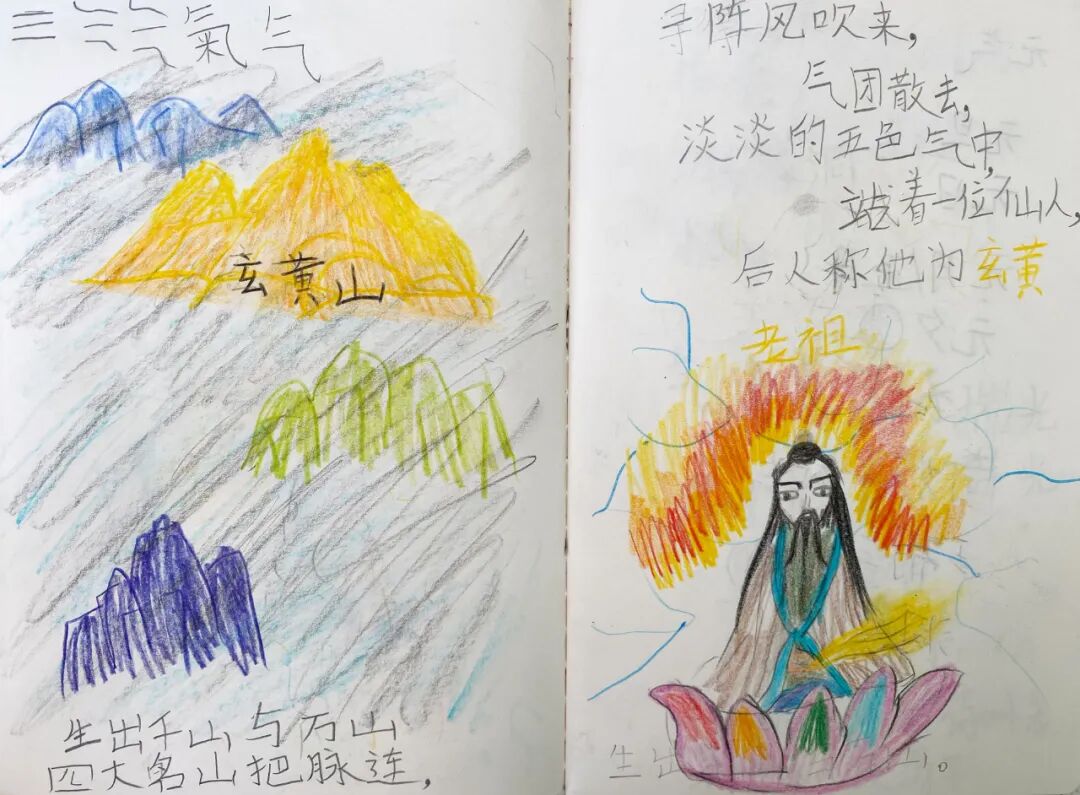 三 气 气 氣 气
玄黄山
生出千山与万山
四大名山把脉连，
阵风吹来，
气团散去，
淡淡的五色气中，
站着一位仙人，
后人称他为玄黄
老祖
生出 山。